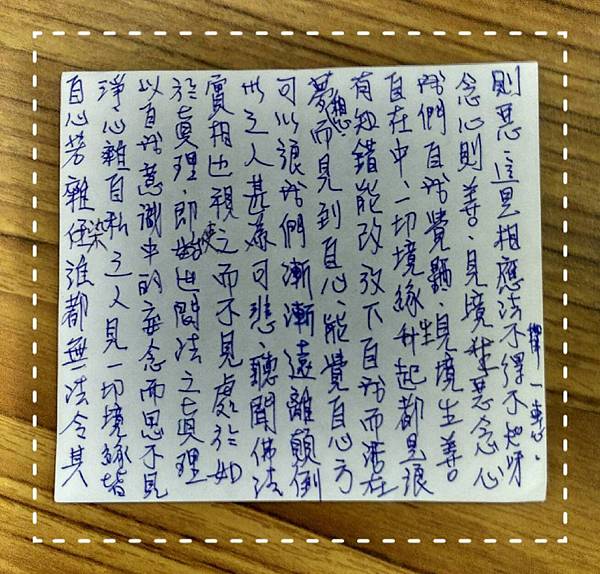 則惡、這是相應法不得不知呀
舉一專心、
念心則善、見境生惡念心
我們自我覺醒、見境生善
自在中、一切境緣升起都是很
有知錯能改放下自我而活在
夢想而見到自心、能覺自心方
可以讓我們漸漸遠離顛倒
此之人甚為可悲、聽聞佛法
實相也視之而不見處於如
於真理、即使世間法之真理
以自我意識中的妄念而思不見
淨心雜自私之人見一切境緣皆
自心若雜任誰都無法令其
染